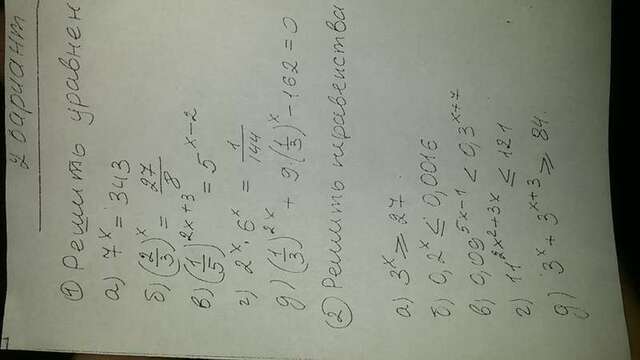 2 вариант
① Решить уравнен
а) 7^x = 343
б) (2/3)^x = 27/8
в) (1/5)^(2x+3) = 5^(x-2)
г) 2^x · 6^x = 1/144
д) (1/3)^(2x) + 9·(1/3)^x - 162 = 0
② Решить неравенства
а) 3^x ≥ 27
б) 0,2^x ≤ 0,0016
в) 0,09^(5x-1) < 0,3^(x+7)
г) 11^(2x²+3x) ≤ 121
д) 3^x + 3^(x+3) ≥ 84